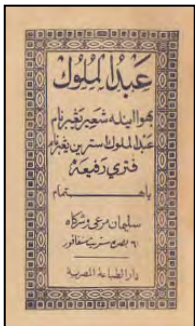 عبدالملوك
بهوا اينله شعير يڠبرنام
عبدالملوك ستري يڠبرنام
فتري رفيعة
باهتمام
سليمان مرعي وشركاه
بصره ستريت سڠافور
دار الطباعة المصرية